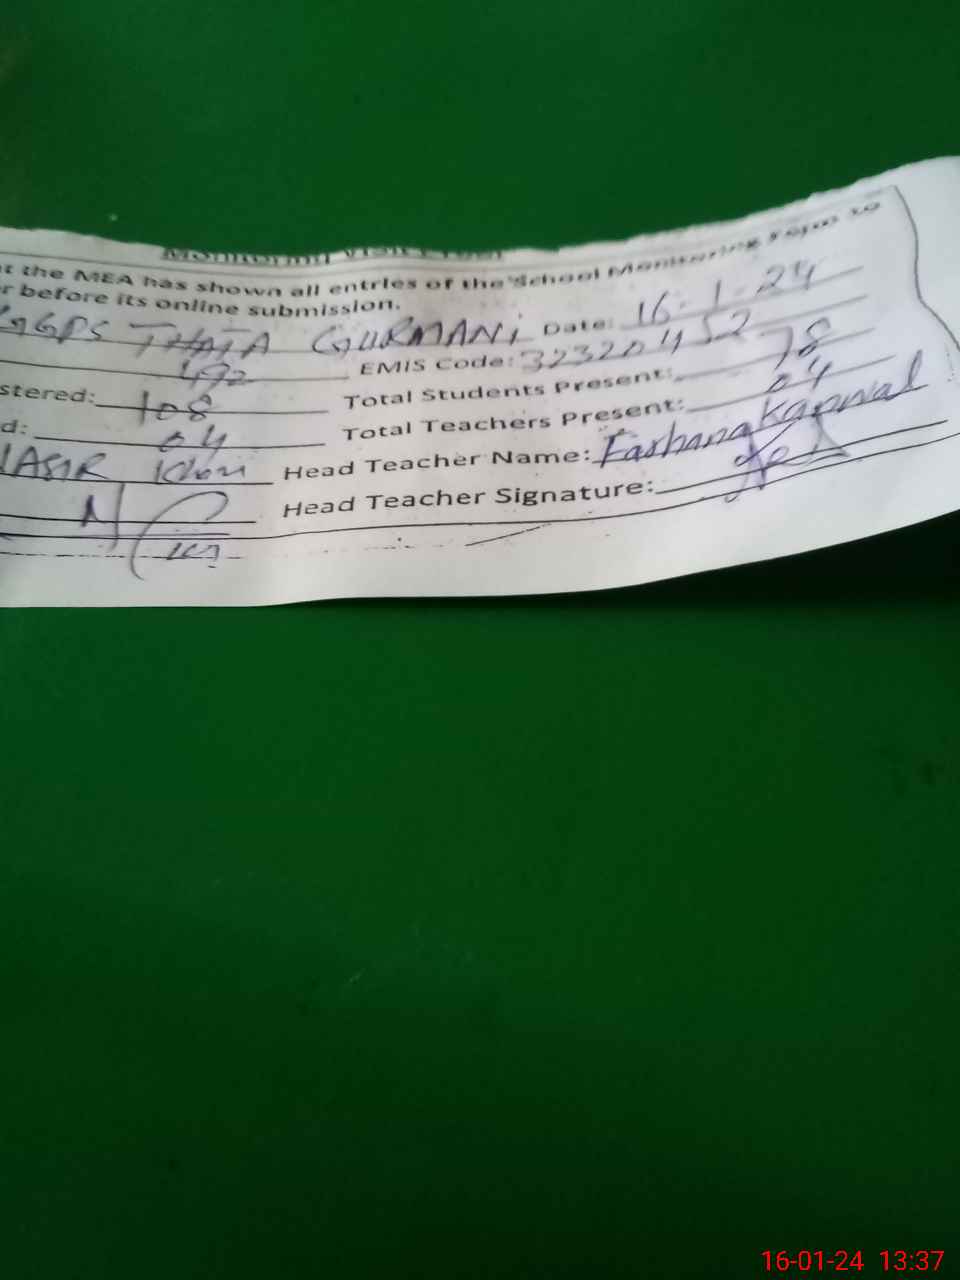 Monitoring Visit
t the MEA has shown all entries of the School Monitoring
r before its online submission.
GGPS THATA GURMANI Date: 16-1-24
492 EMIS Code: 32320452
stered: 108 Total Students Present: 78
d: 04 Total Teachers Present: 04
NASIR Khan Head Teacher Name:
Head Teacher Signature:
16-01-24 13:37